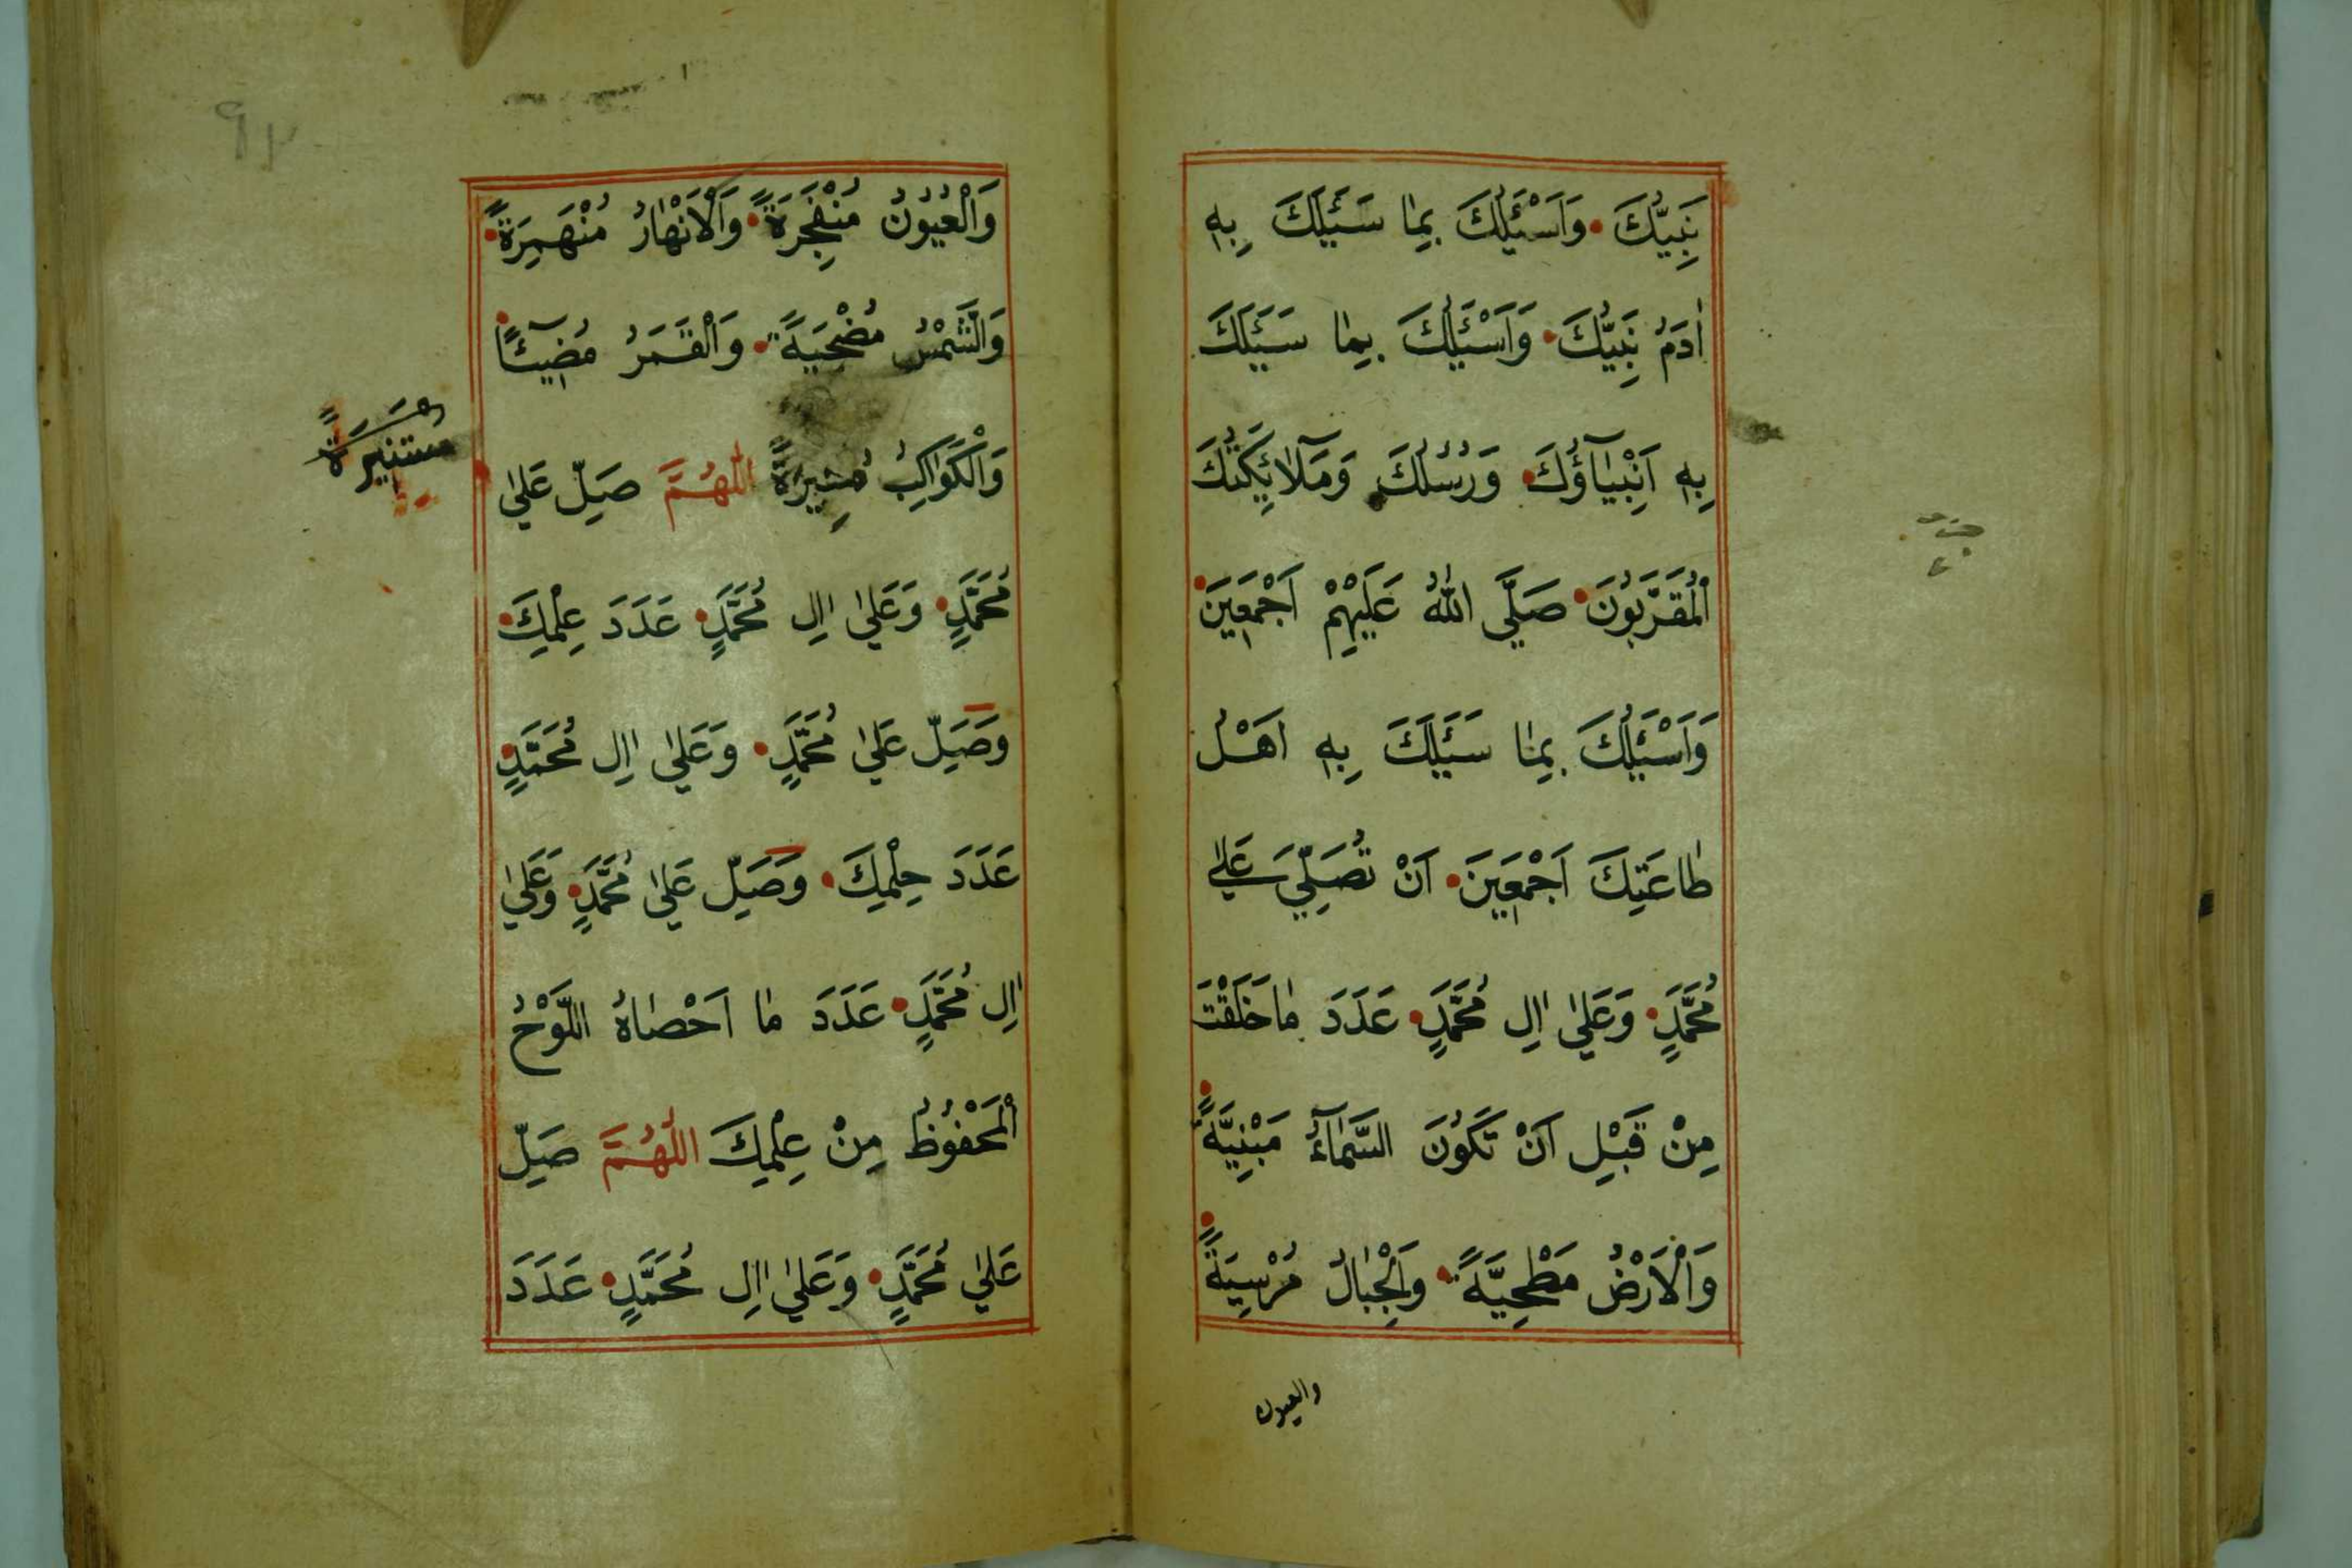 نَبِيُّكَ وَاَسْئَلُكَ بِمَا سَئَلَكَ بِهِ
اٰدَمُ نَبِيُّكَ وَاَسْئَلُكَ بِمَا سَئَلَكَ
بِهِ اَنْبِيَاۤؤُكَ وَرُسُلُكَ وَمَلَاۤئِكَتُكَ
الْمُقَرَّبُونَ صَلَّى اللّٰهُ عَلَيْهِمْ اَجْمَعِينَ
وَاَسْئَلُكَ بِمَا سَئَلَكَ بِهِ اَهْلُ
طَاعَتِكَ اَجْمَعِينَ اَنْ تُصَلِّيَ عَلٰى
مُحَمَّدٍ وَعَلٰى اٰلِ مُحَمَّدٍ عَدَدَ مَا خَلَقْتَ
مِنْ قَبْلِ اَنْ تَكُونَ السَّمَاۤءُ مَبْنِيَّةً
وَالْاَرْضُ مَطْحِيَّةً وَالْجِبَالُ مُرْسِيَةً
والعيون
وَالْعُيُونُ مُنْفَجِرَةً وَالْاَنْهَارُ مُنْهَمِرَةً
وَالشَّمْسُ مُضْحِيَةً وَالْقَمَرُ مُضِيۤئًا
وَالْكَوَاكِبُ مُنِيرَةً اَللّٰهُمَّ صَلِّ عَلٰى
مُسْتَنِيرَةً
مُحَمَّدٍ وَعَلٰى اٰلِ مُحَمَّدٍ عَدَدَ عِلْمِكَ
وَصَلِّ عَلٰى مُحَمَّدٍ وَعَلٰى اٰلِ مُحَمَّدٍ
عَدَدَ حِلْمِكَ وَصَلِّ عَلٰى مُحَمَّدٍ وَعَلٰى
اٰلِ مُحَمَّدٍ عَدَدَ مَا اَحْصَاهُ اللَّوْحُ
الْمَحْفُوظُ مِنْ عِلْمِكَ اَللّٰهُمَّ صَلِّ
عَلٰى مُحَمَّدٍ وَعَلٰى اٰلِ مُحَمَّدٍ عَدَدَ